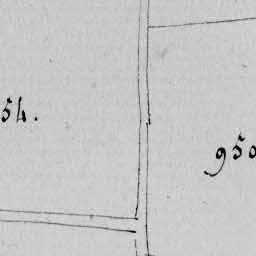 54.
950